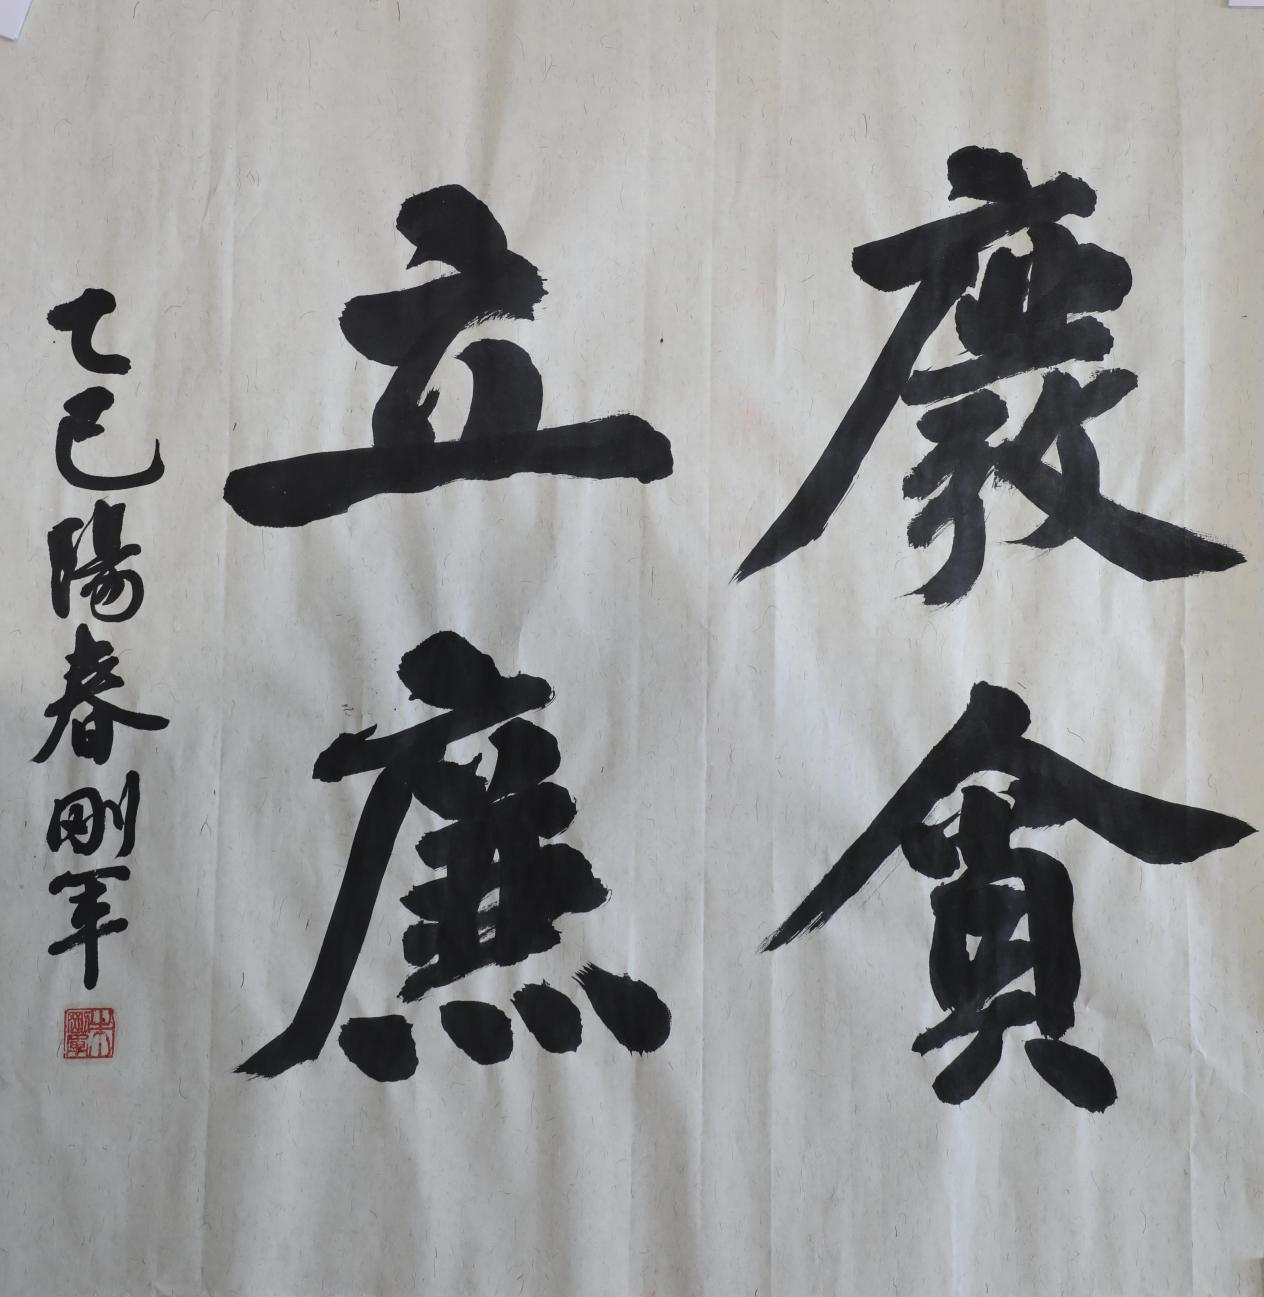 廢貪
立廉
乙巳陽春剛軍